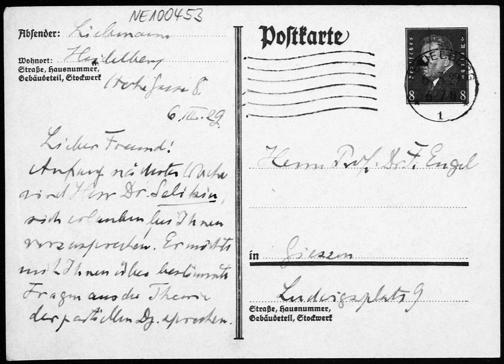 NEA00453
Absender: Liebmann
Wohnort: Heidelberg
Straße, Hausnummer,
Gebäudeteil, Stockwerk
8
6. III. 29
Lieber Freund!
Anfang nächster Woche
wird Herr Dr. Salkin,
sich erlauben, bei Ihnen
vorzusprechen. Er möchte
mit Ihnen über bestimmte
Fragen aus der Theorie
der partiellen Dg. sprechen.
Postkarte
Deutsches Reich
8 8
HEIDELBERG
1
Herrn Prof. Dr. F. Engel
in Giessen
Ludwigsplatz 9
Straße, Hausnummer,
Gebäudeteil, Stockwerk